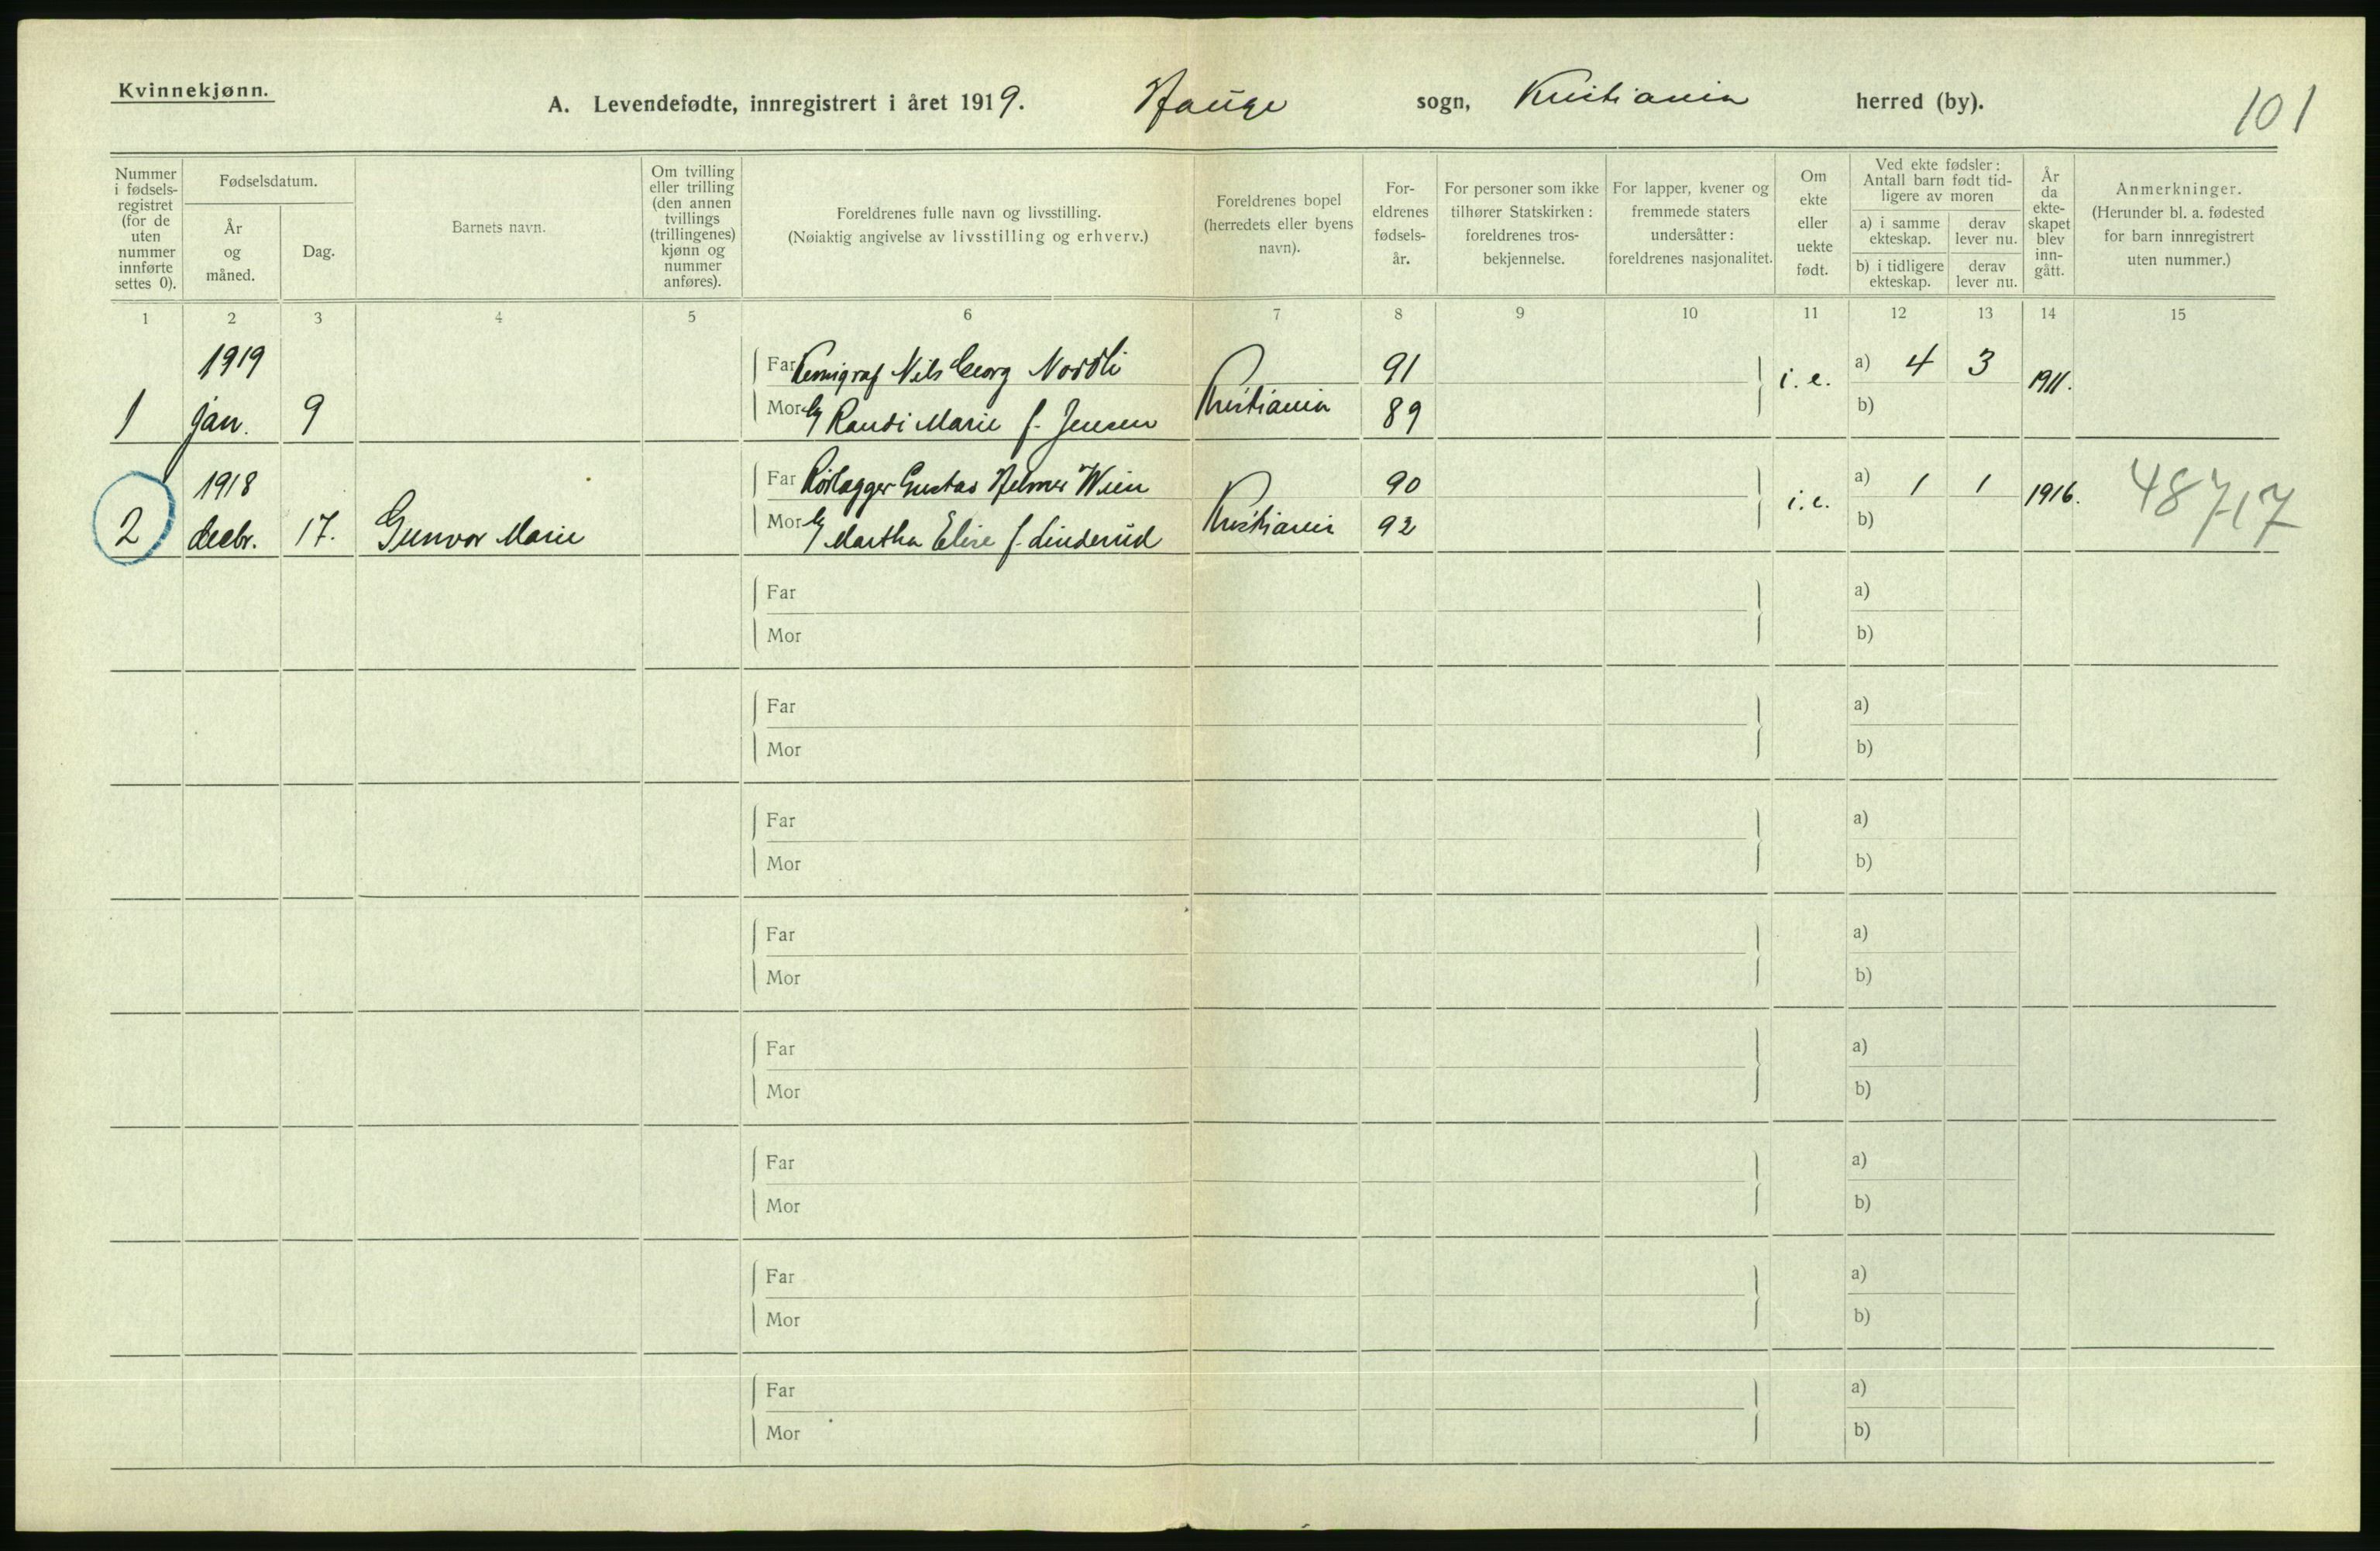 Kvinnekjønn.
A. Levendefødte, innregistrert i året 1919. Hauge sogn, Kristiania herred (by).
101
Nummer i fødsels- registret (for de uten nummer innførte settes 0).
Fødselsdatum.
År og måned.
Dag.
Barnets navn.
Om tvilling eller trilling (den annen tvillings (trillingenes) kjønn og nummer anføres).
Foreldrenes fulle navn og livsstilling.
(Nøiaktig angivelse av livsstilling og erhverv.)
Foreldrenes bopel (herredets eller byens navn).
For- eldrenes fødsels- år.
For personer som ikke tilhører Statskirken: foreldrenes tros- bekjennelse.
For lapper, kvener og fremmede staters undersåtter: foreldrenes nasjonalitet.
Om ekte eller uekte født.
Ved ekte fødsler: Antall barn født tid- ligere av moren
a) i samme ekteskap.
derav lever nu.
b) i tidligere ekteskap.
derav lever nu.
År da ekte- skapet blev inn- gått.
Anmerkninger.
(Herunder bl. a. fødested for barn innregistrert uten nummer.)
1 2 3 4 5 6 7 8 9 10 11 12 13 14 15
1919
Far Kemigraf Nils Georg Nordli 91 a) 4 3
1 jan. 9 Mor Randi Marie f. Jensen Kristiania 89 i. e. b) 1911.
1918
Far Rørlægger Gustav Helmer Wien 90 a) 1 1 1916.
2 decbr. 17. Gunvor Marie Mor Martha Elise f. Linderud Kristiania 92 i. e. b)
48717
Far a)
Mor b)
Far a)
Mor b)
Far a)
Mor b)
Far a)
Mor b)
Far a)
Mor b)
Far a)
Mor b)
Far a)
Mor b)
Far a)
Mor b)